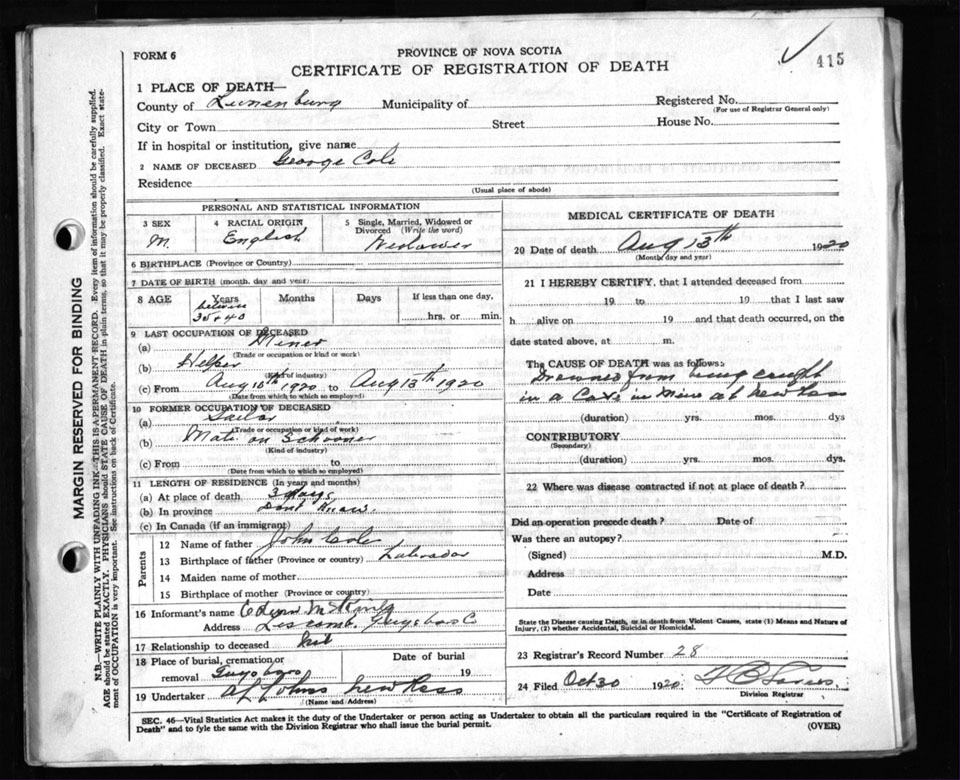 FORM 6
PROVINCE OF NOVA SCOTIA
CERTIFICATE OF REGISTRATION OF DEATH
415
1 PLACE OF DEATH—
County of Lunenburg Municipality of Registered No.
(For use of Registrar General only)
City or Town Street House No.
If in hospital or institution, give name
2 NAME OF DECEASED George Cole
Residence
(Usual place of abode)
MARGIN RESERVED FOR BINDING
N.B.—WRITE PLAINLY WITH UNFADING INK—THIS IS A PERMANENT RECORD. Every item of information should be carefully supplied.
AGE should be stated EXACTLY. PHYSICIANS should STATE CAUSE OF DEATH in plain terms, so that it may be properly classified. Exact state-
ment of OCCUPATION is very important. See instructions on back of Certificate.
PERSONAL AND STATISTICAL INFORMATION
3 SEX
M.
4 RACIAL ORIGIN
English
5 Single, Married, Widowed or
Divorced (Write the word)
Widower
6 BIRTHPLACE (Province or Country)
7 DATE OF BIRTH (month, day and year)
8 AGE Years Months Days If less than one day,
35 + 40 hrs. or min.
9 LAST OCCUPATION OF DECEASED
(a) Miner
(Trade or occupation or kind or work)
(b) Helper
(Kind of industry)
(c) From Aug 10th 1920 to Aug 13th 1920
(Date from which to which so employed)
10 FORMER OCCUPATION OF DECEASED
(a) Sailor
(Trade or occupation or kind of work)
(b) Mate on Schooner
(Kind of industry)
(c) From to
(Date from which to which so employed)
11 LENGTH OF RESIDENCE (In years and months)
(a) At place of death 3 days
(b) In province Dont Know
(c) In Canada (if an immigrant)
Parents
12 Name of father John Cole
13 Birthplace of father (Province or country) Labrador
14 Maiden name of mother
15 Birthplace of mother (Province or country)
16 Informant's name
Address Liscomb, Guysboro Co
17 Relationship to deceased
18 Place of burial, cremation or
removal Guysboro
Date of burial 19
19 Undertaker New Ross
(Name and Address)
MEDICAL CERTIFICATE OF DEATH
20 Date of death Aug 13th 1920
(Month day and year)
21 I HEREBY CERTIFY, that I attended deceased from
19 to 19 that I last saw
h alive on 19 and that death occurred, on the
date stated above, at m.
The CAUSE OF DEATH was as follows:
Drowned from being caught
in a Cave in Mine at New Ross
(duration) yrs. mos. dys
CONTRIBUTORY
(Secondary)
(duration) yrs. mos. dys.
22 Where was disease contracted if not at place of death?
Did an operation precede death? Date of
Was there an autopsy?
(Signed) M.D.
Address
Date
State the Disease causing Death, or in death from Violent Causes, state (1) Means and Nature of
Injury, (2) whether Accidental, Suicidal or Homicidal.
23 Registrar's Record Number 28
24 Filed Oct 30 1920
Division Registrar
SEC. 46—Vital Statistics Act makes it the duty of the Undertaker or person acting as Undertaker to obtain all the particulars required in the "Certificate of Registration of
Death" and to fyle the same with the Division Registrar who shall issue the burial permit. (OVER)